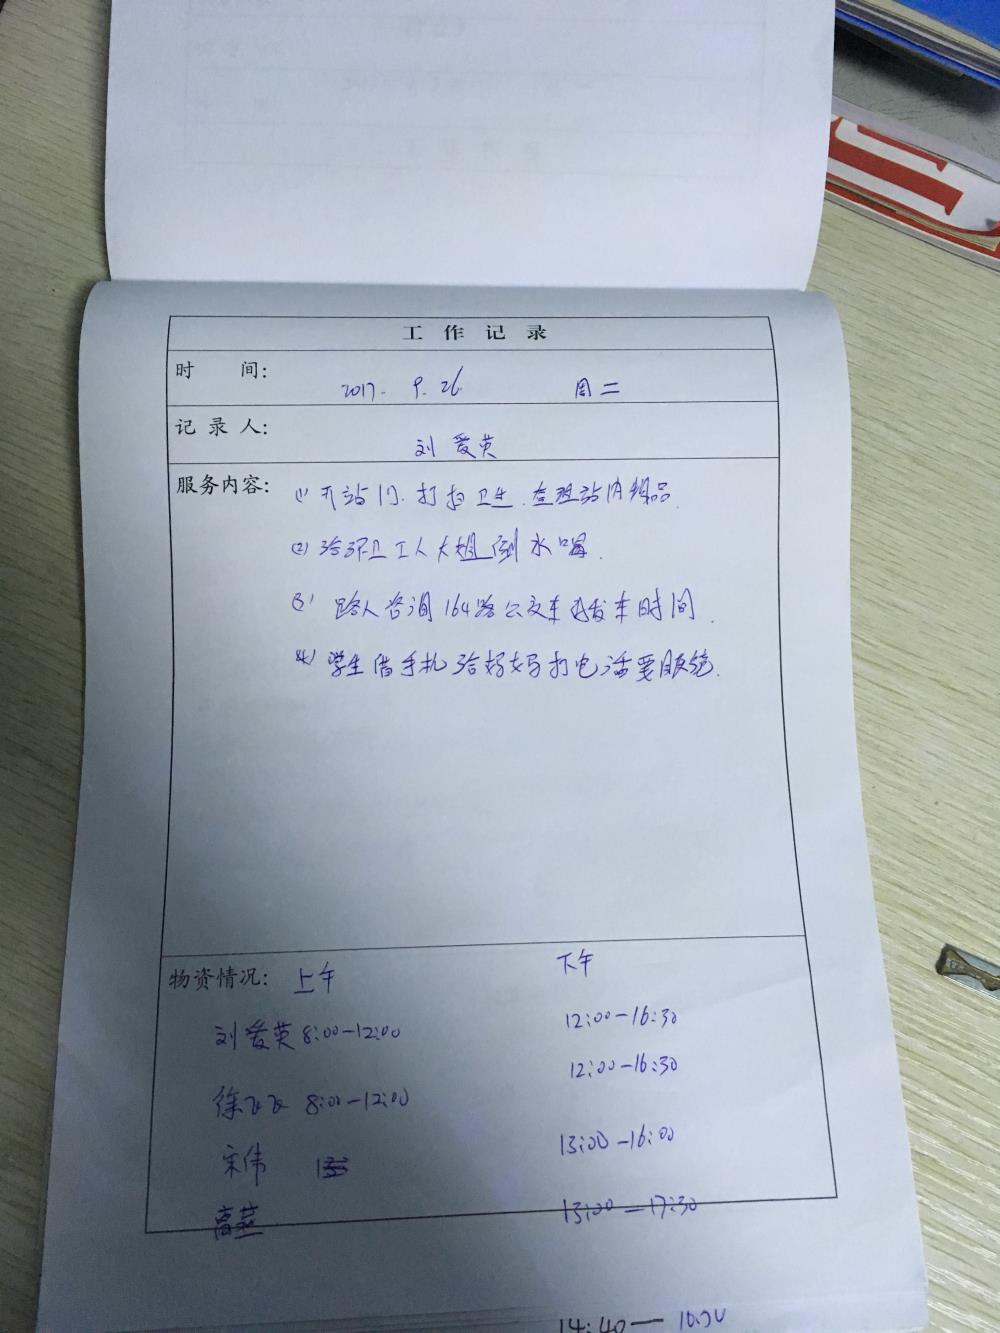 工作记录
时 间: 2017. 9. 26. 周二
记录人: 刘爱英
服务内容: (1) 开站门.打扫卫生.查理站内物品.
(2) 给环卫工人大姐倒水喝.
(3) 路人咨询164路公交车发车时间.
(4) 学生借手机给妈妈打电话要眼镜.
物资情况: 上午 下午
刘爱英 8:00-12:00 12:00-16:30
徐飞飞 8:00-12:00 12:00-16:30
宋伟 13:00-16:00
高燕 13:00-17:30
14:40-